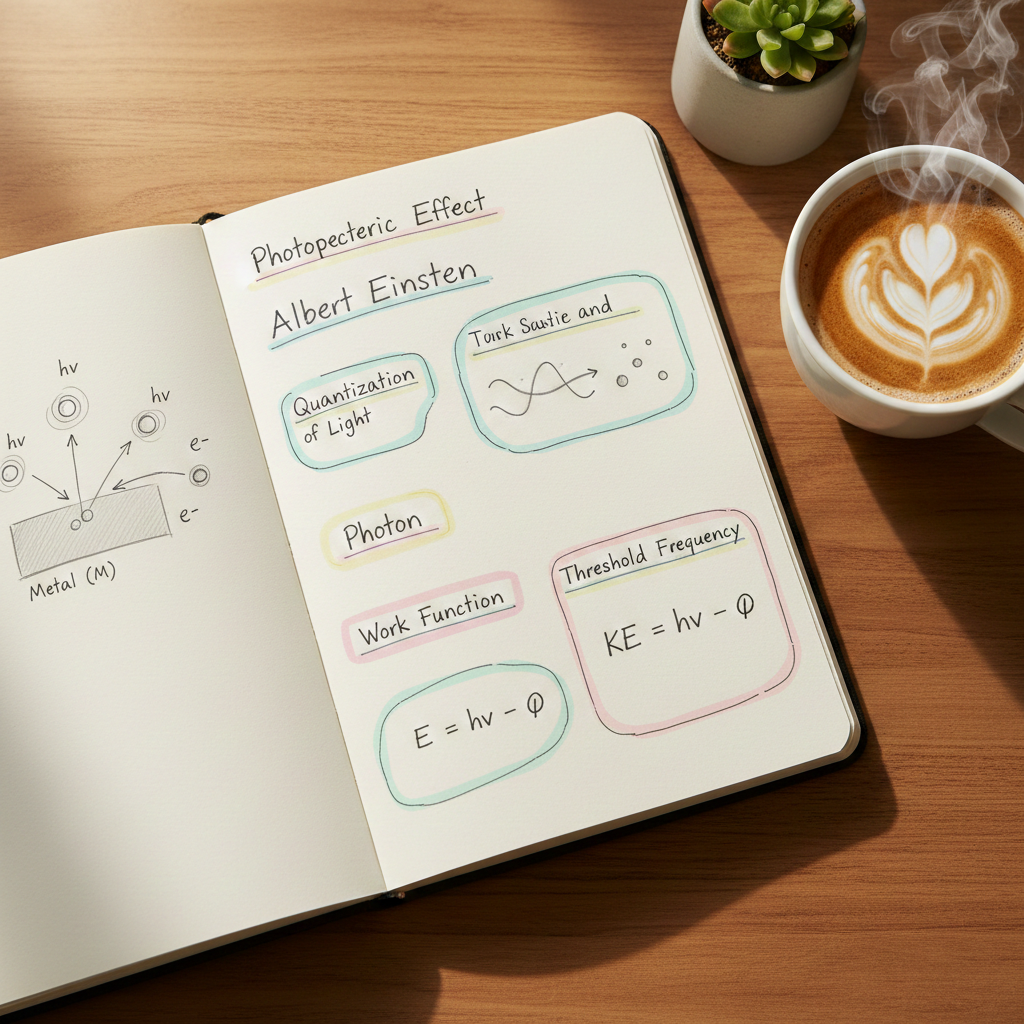 hv
hv
hv
e-
e-
Metal (M)
Photopecteric Effect
Albert Einsten
Quantization
of Light
Tork Sautie and
Photon
Work Function
E = hv - φ
Threshold Frequency
KE = hv - φ